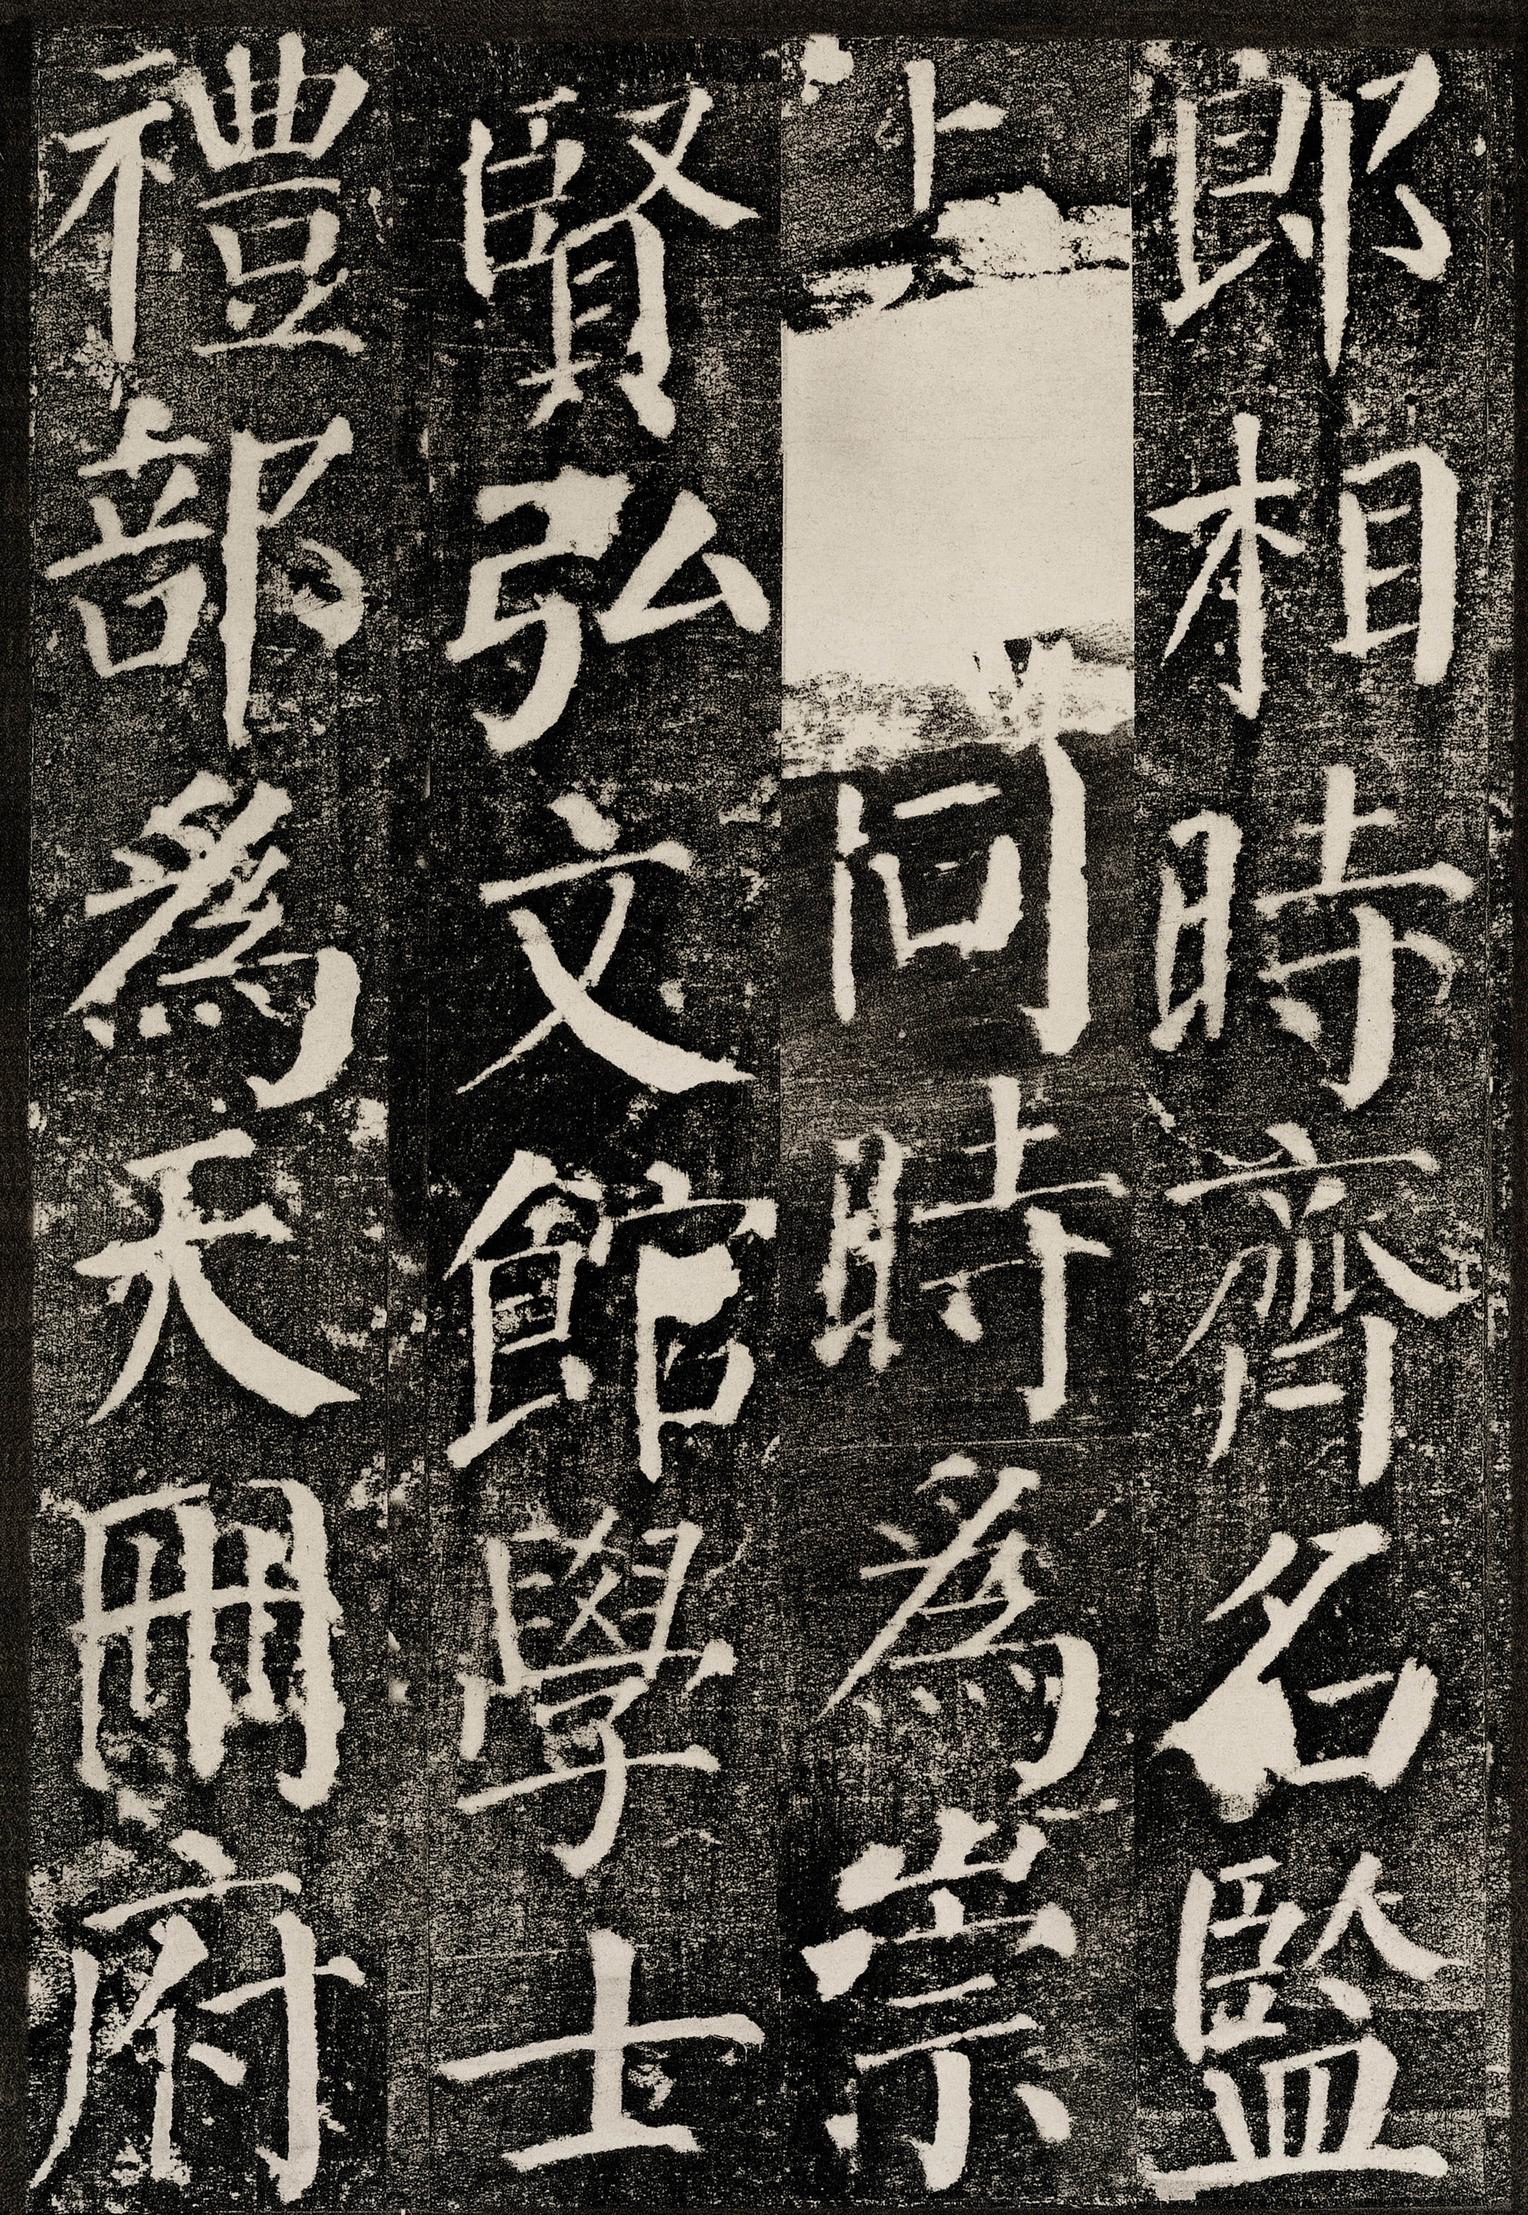 郎相時齊名監
同時爲崇
賢弘文館學士
禮部爲天冊府